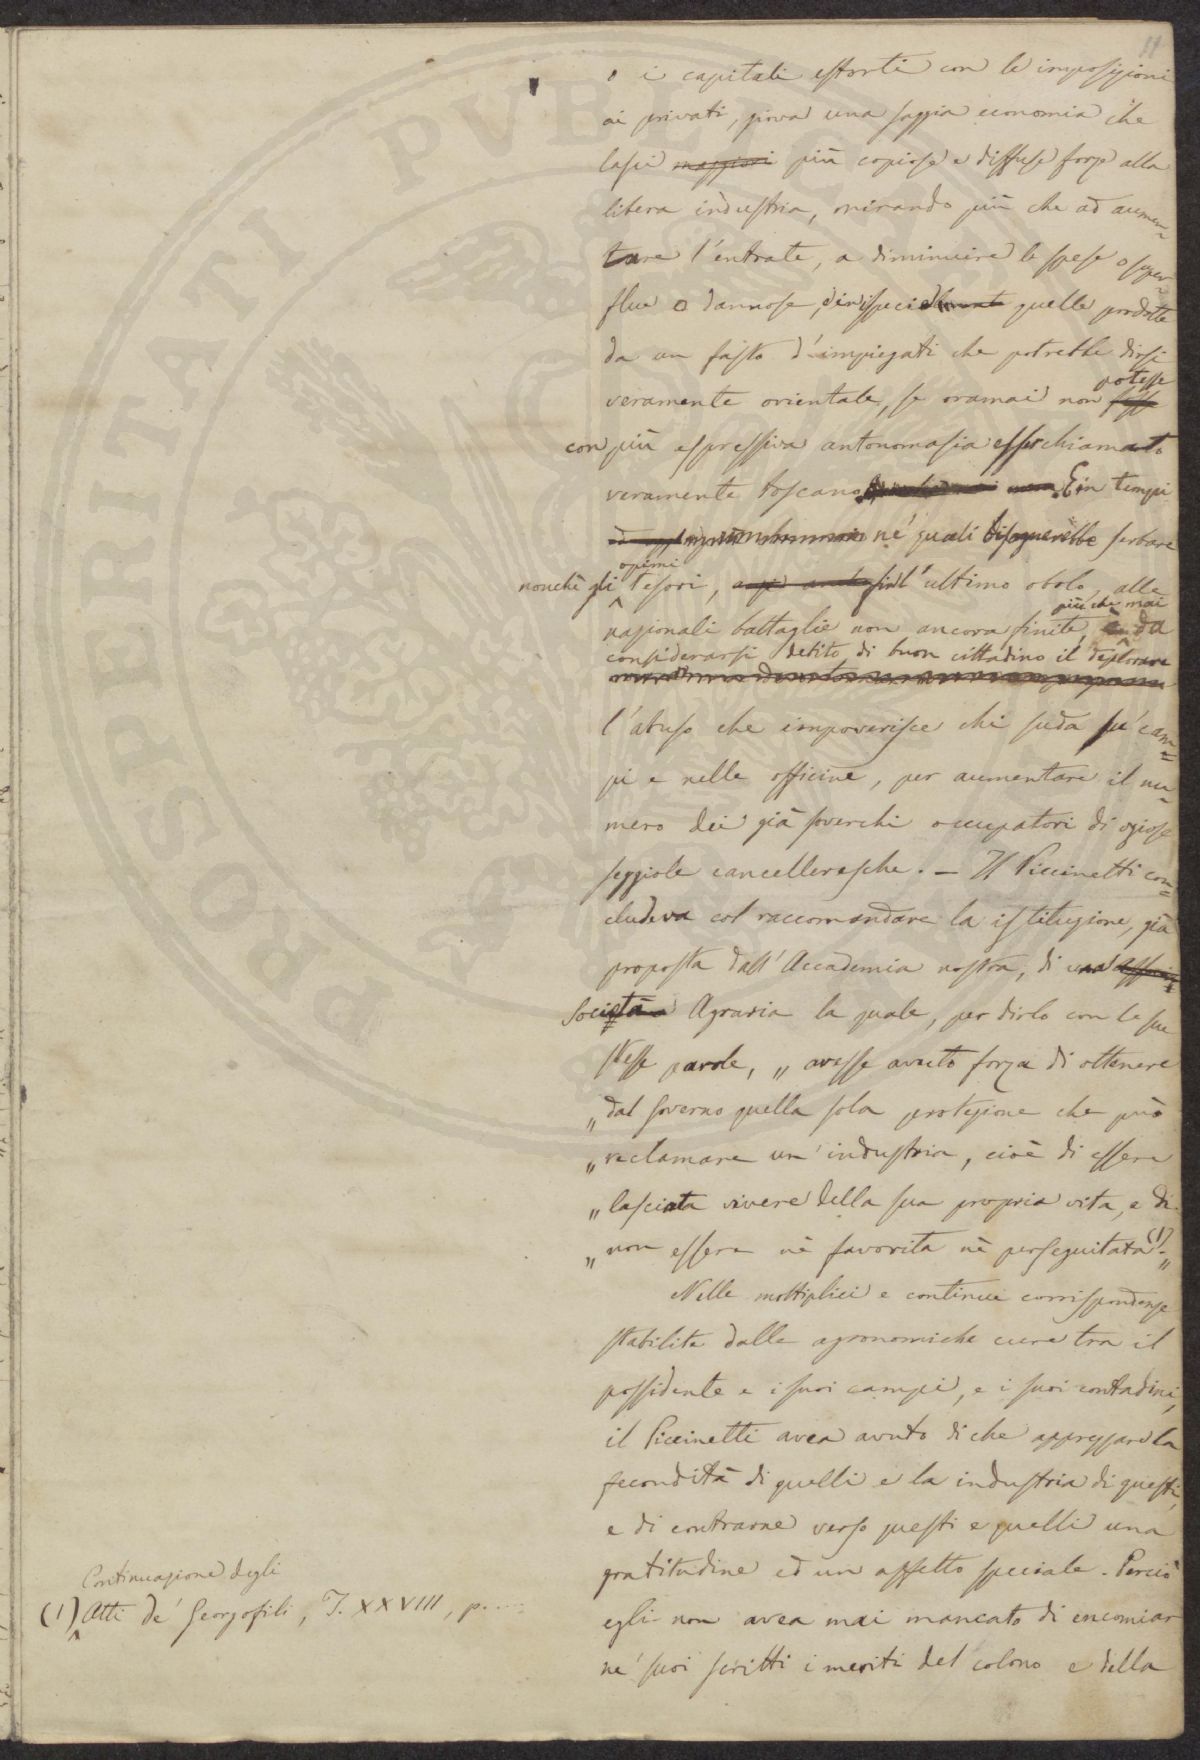 11
o i capitali estorti con le imposizioni
ai privati, giova una saggia economia che
lasci maggiori più copiose e diffuse forze alla
libera industria, mirando più che ad aumen=
tare l'entrate, a diminuire le spese o super=
flue o dannose, quelle prodotte
da un fasto d'impiegati che potrebbe dirsi
potesse
veramente orientale, se oramai non fosse
con più espressiva antonomasia esser chiamato
veramente toscano. E in tempi
ne' quali bisognerebbe serbare
opimi
nonchè gli tesori, l'ultimo obolo, alle
più che mai
nazionali battaglie non ancora finite, è da
considerarsi debito di buon cittadino il deplorare
l'abuso che impoverisce chi suda su' cam=
pi e nelle officine, per aumentare il nu=
mero dei già soverchi occupatori di oziose
seggiole cancelleresche. — Il Piccinetti con=
cludeva col raccomandare la istituzione, già
proposta dall'Accademia nostra, di una
Società Agraria la quale, per dirlo con le sue
stesse parole, „ avesse avuto forza di ottenere
„ dal Governo quella sola protezione che può
„ reclamare un'industria, cioè di essere
„ lasciata vivere della sua propria vita, e di
„ non essere nè favorita nè perseguitata (1). „
Nelle moltiplici e continue corrispondenze
stabilite dalle agronomiche cure tra il
possidente e i suoi campi, e i suoi contadini,
il Piccinetti avea avuto di che apprezzare la
fecondità di quelli e la industria di questi,
e di contrarne verso questi e quelli una
gratitudine ed un affetto speciale. Perciò
egli non avea mai mancato di encomiar
ne' suoi scritti i meriti del colono e della
Continuazione degli
(1) Atti de' Georgofili, T. XXVIII, p. ....
PROSPERITATI PVBLICAE